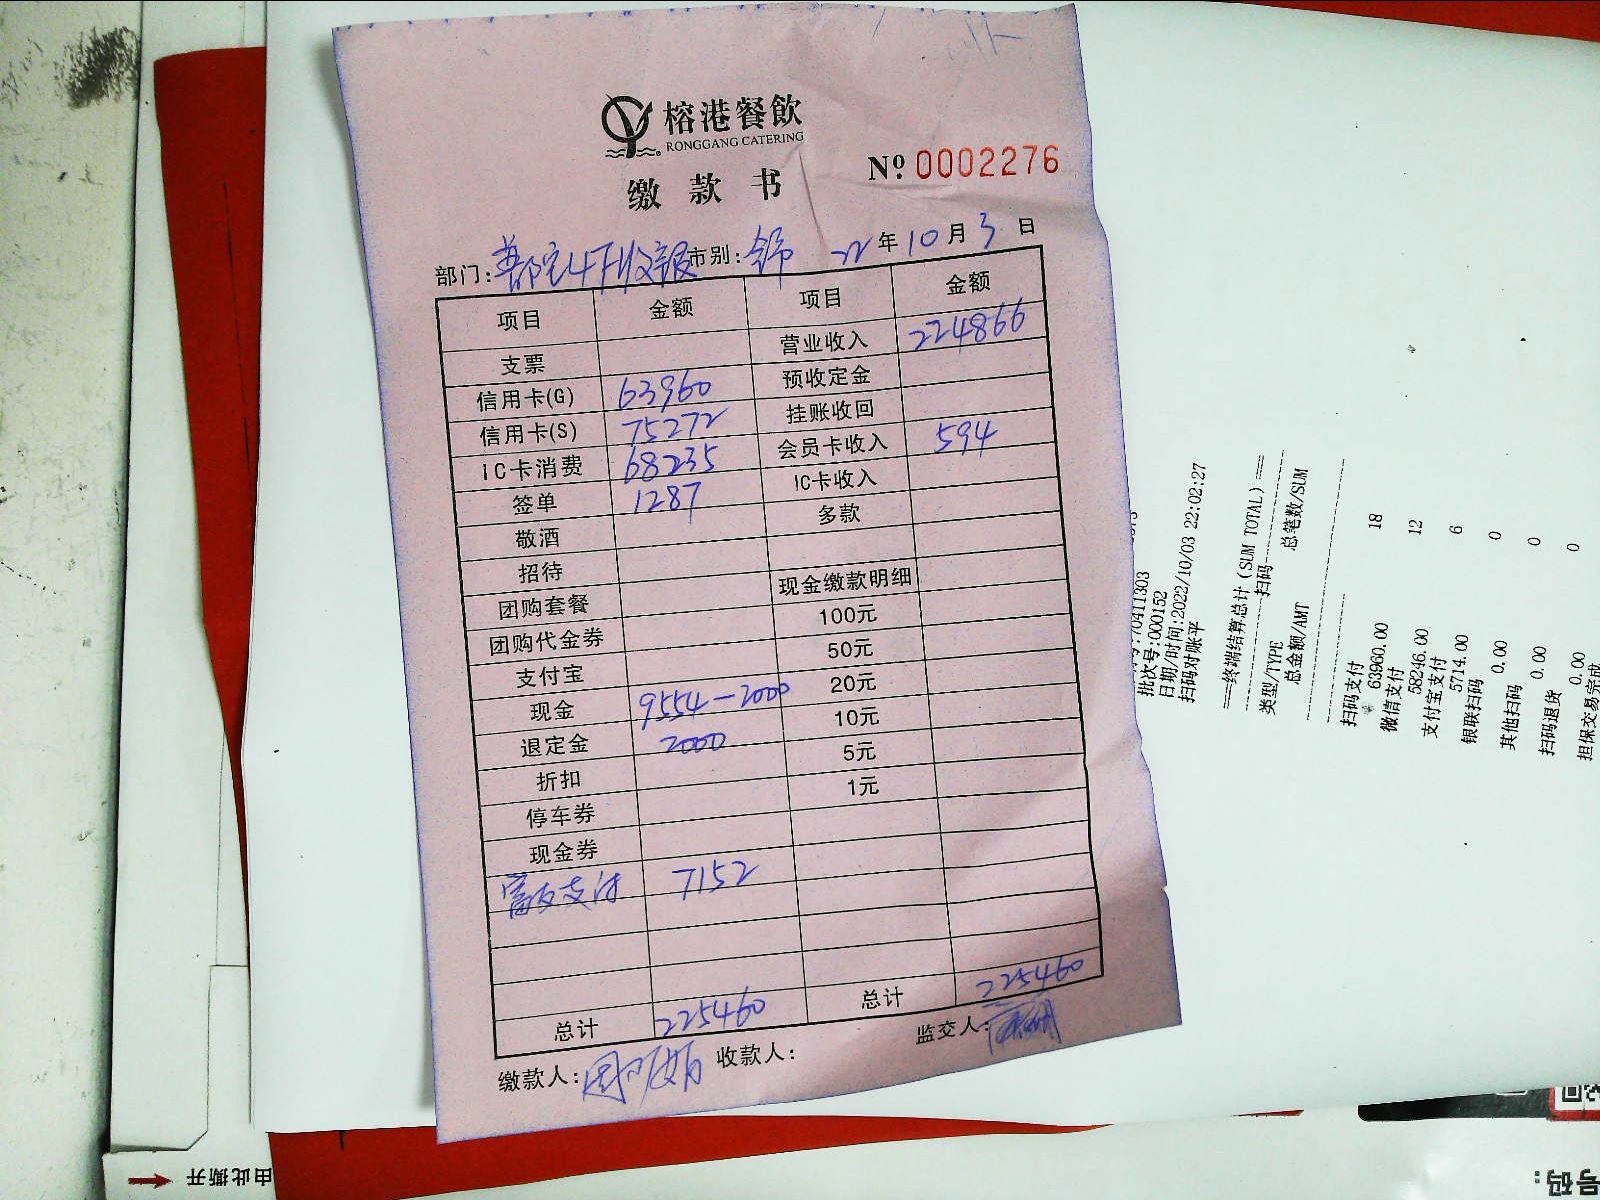 榕港餐飲
RONGGANG CATERING
缴款书
№ 0002276
部门: 4F收银 市别: 22年10月3日
项目 金额 项目 金额
支票 营业收入 224866
信用卡(G) 63960 预收定金
信用卡(S) 75272 挂账收回
IC卡消费 68235 会员卡收入 594
签单 1287 IC卡收入
敬酒 多款
招待
团购套餐 现金缴款明细
团购代金券 100元
支付宝 50元
现金 9554-2000 20元
退定金 2000 10元
折扣 5元
停车券 1元
现金券
富友支付 7152
总计 225460 总计 225460
缴款人: 收款人: 监交人:
70411303
批次号:000152
日期/时间:2022/10/03 22:02:27
扫码对账平
===终端结算总计(SUM TOTAL)===
类型/TYPE 扫码
总金额/AMT 总笔数/SUM
扫码支付
63960.00 18
微信支付
58246.00 12
支付宝支付
5714.00 6
银联扫码
0.00 0
其他扫码
0.00 0
扫码退货
0.00 0
担保交易完成
由此撕开
号码: